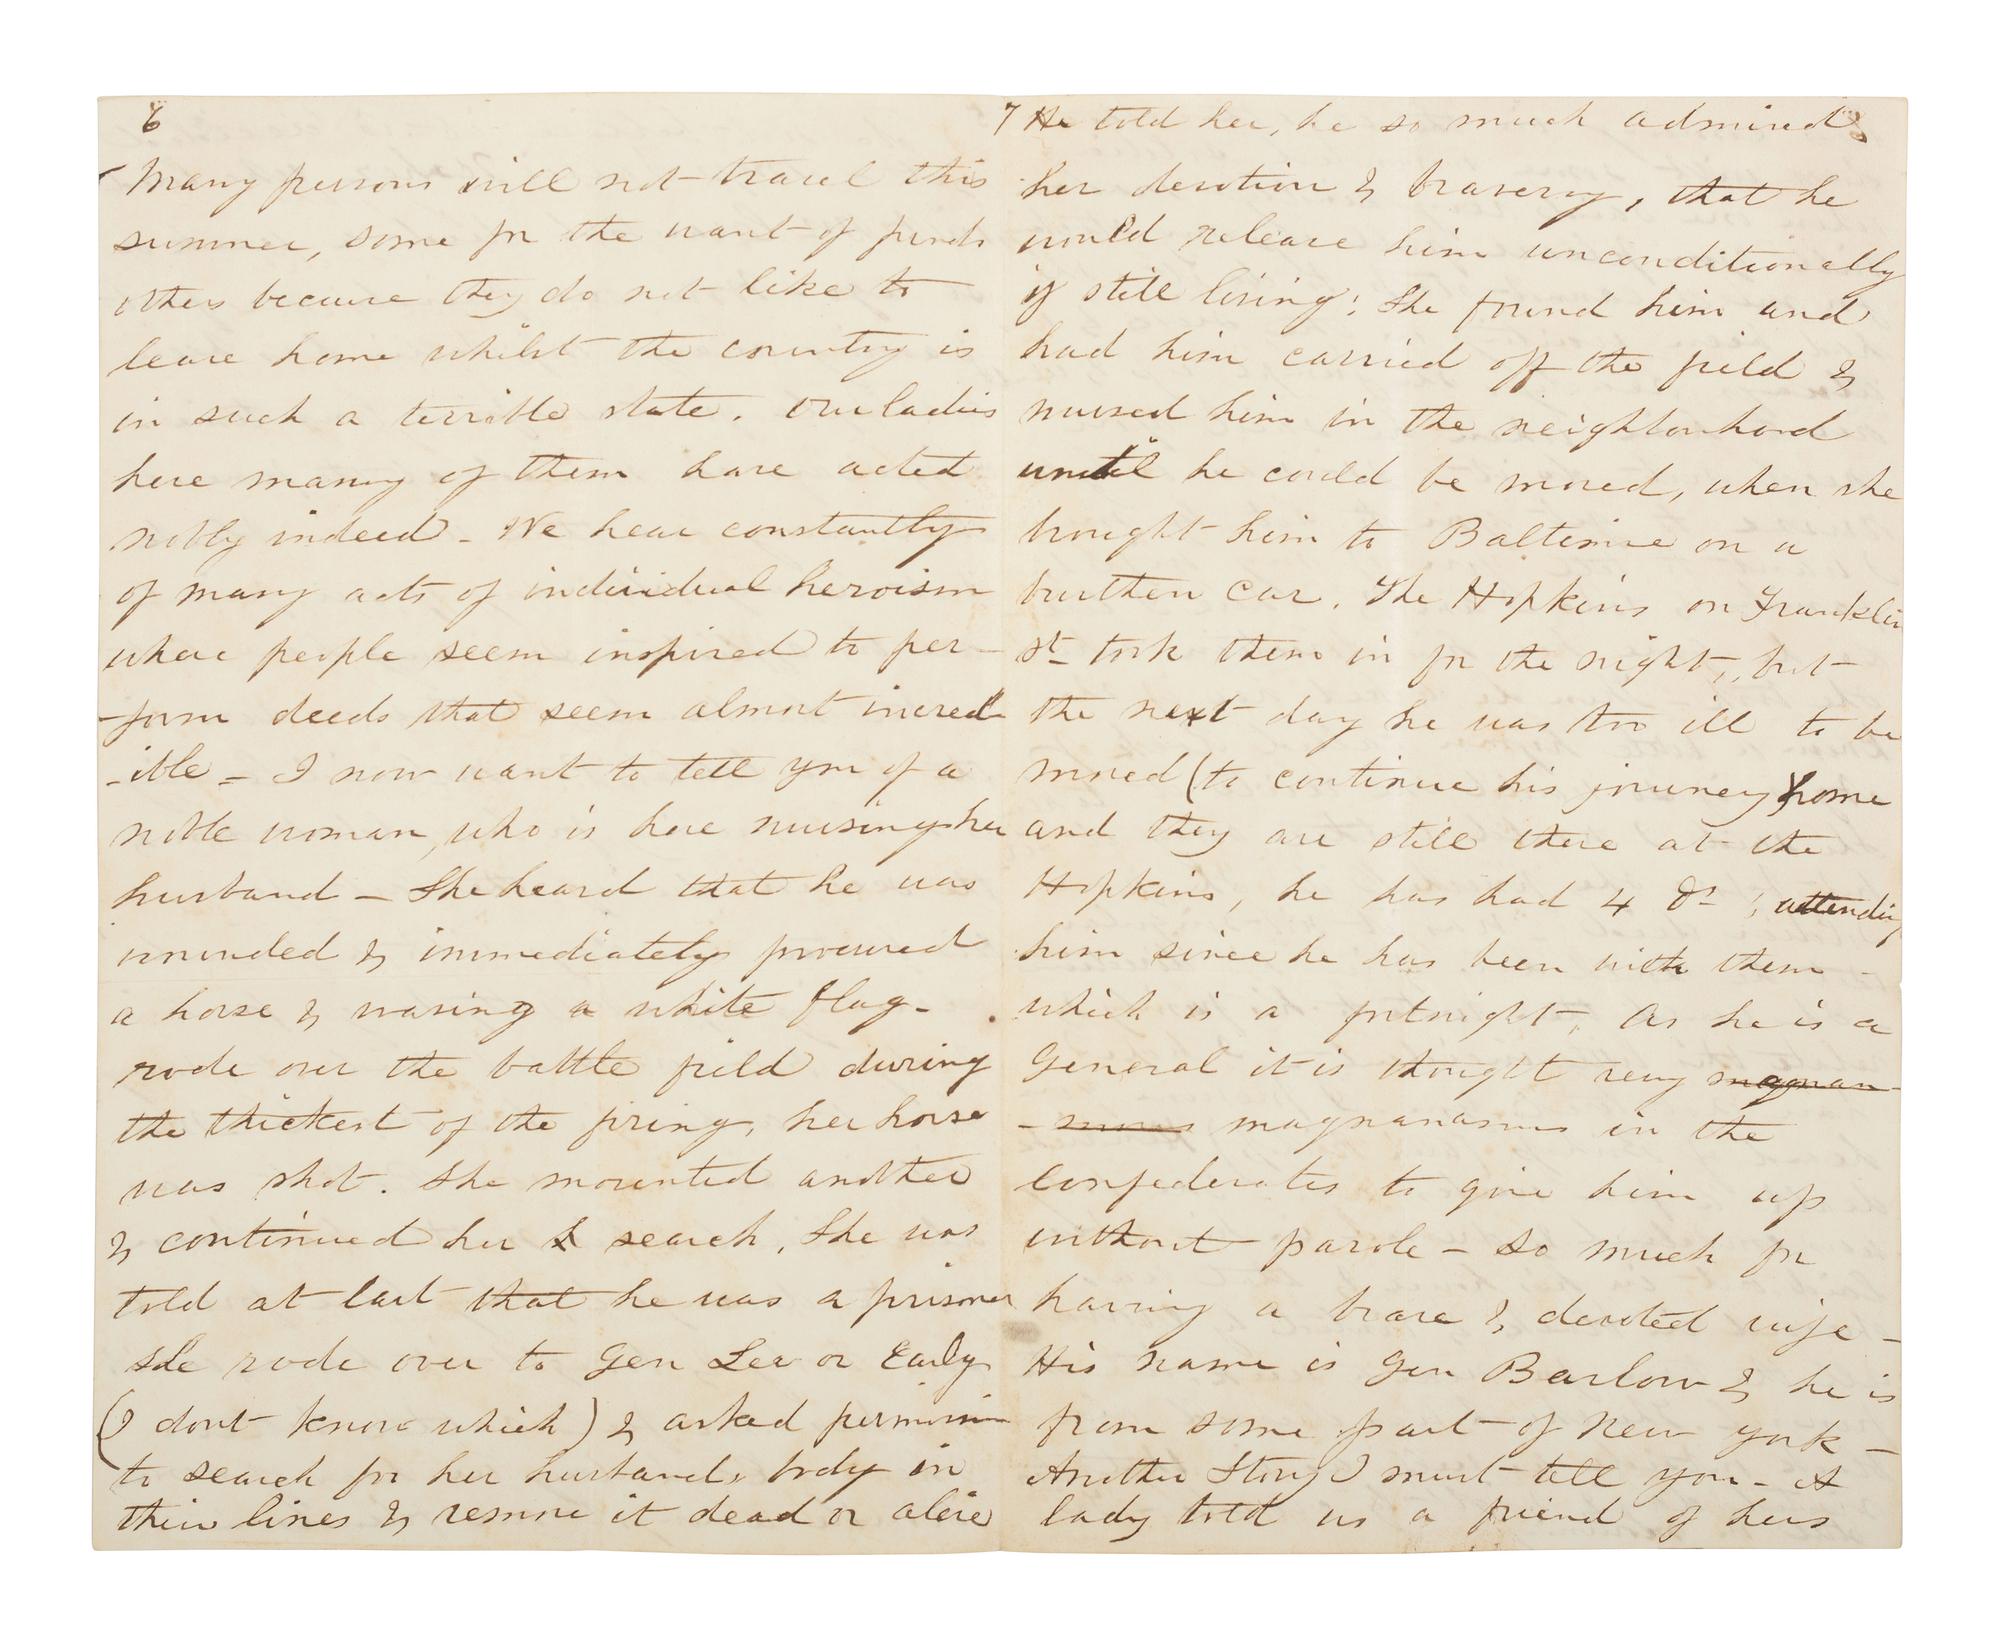 6
Many persons will not travel this
summer, some for the want of funds
others because they do not like to
leave home whilst the country is
in such a terrible state. Our ladies
here many of them have acted
nobly indeed - We hear constantly
of many acts of individual heroism
where people seem inspired to per-
-form deeds that seem almost incred-
-ible - I now want to tell you of a
noble woman, who is here nursing her
husband - She heard that he was
wounded & immediately procured
a horse & waving a white flag -
rode over the battle field during
the thickest of the firing, her horse
was shot. She mounted another
& continued her search, She was
told at last that he was a prisoner
She rode over to Gen Lee or Early
(I dont know which) & asked permission
to search for her husbands body in
their lines & remove it dead or alive
7 He told her, he so much admired
her devotion & bravery, that he
would release him unconditionally
if still living; She found him and
had him carried off the field &
nursed him in the neighborhood
until he could be moved, when she
brought him to Baltimore on a
burthen car. The Hopkins on Franklin
st took them in for the night, but
the next day he was too ill to be
moved (to continue his journey) home
and they are still there at the
Hopkins, he has had 4 Drs attending
him since he has been with them -
which is a fortnight. As he is a
General it is thought very magnan-
-imous magnanamus in the
Confederates to give him up
without parole - so much for
having a brave & devoted wife -
His name is Gen Barlow & he is
from some part of New York -
Another Story I must tell you - A
lady told us a friend of hers